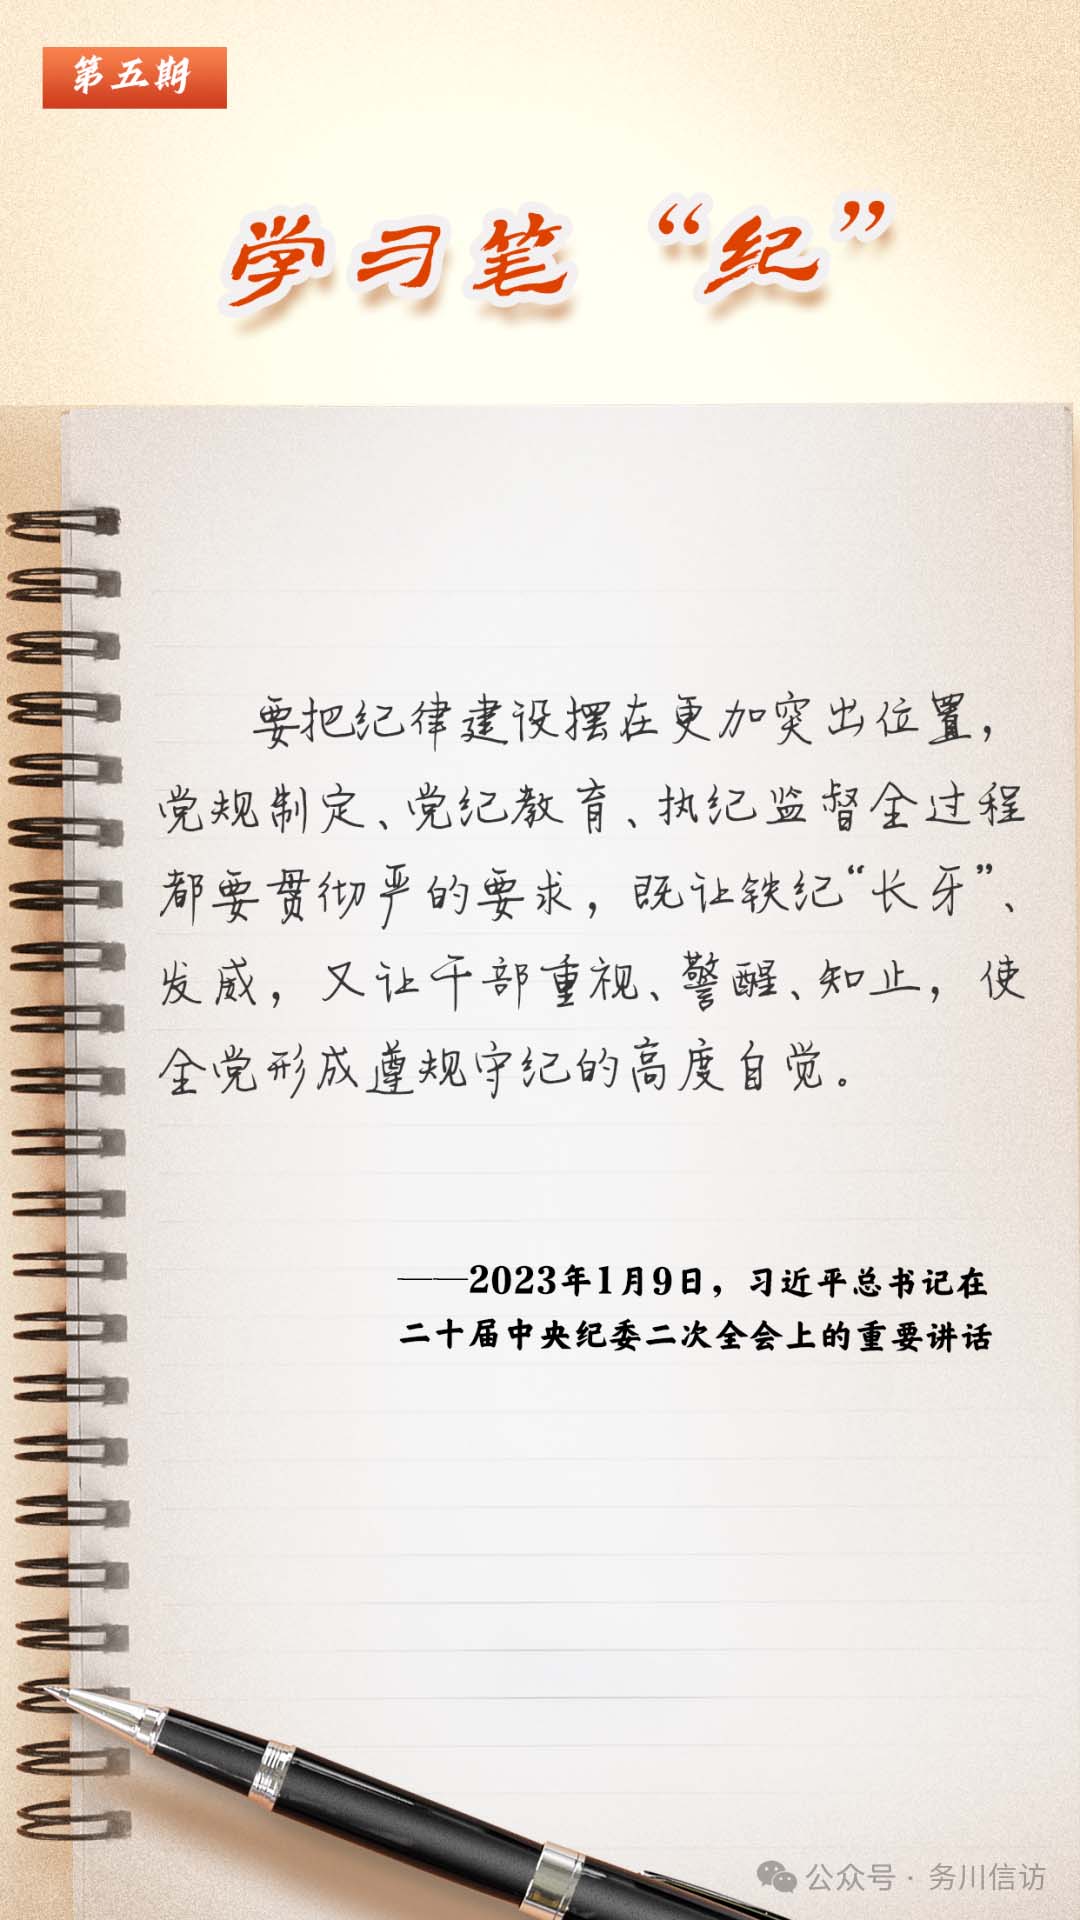 第五期
学习笔“纪”
要把纪律建设摆在更加突出位置，
党规制定、党纪教育、执纪监督全过程
都要贯彻严的要求，既让铁纪“长牙”、
发威，又让干部重视、警醒、知止，使
全党形成遵规守纪的高度自觉。
——2023年1月9日，习近平总书记在
二十届中央纪委二次全会上的重要讲话
公众号·务川信访